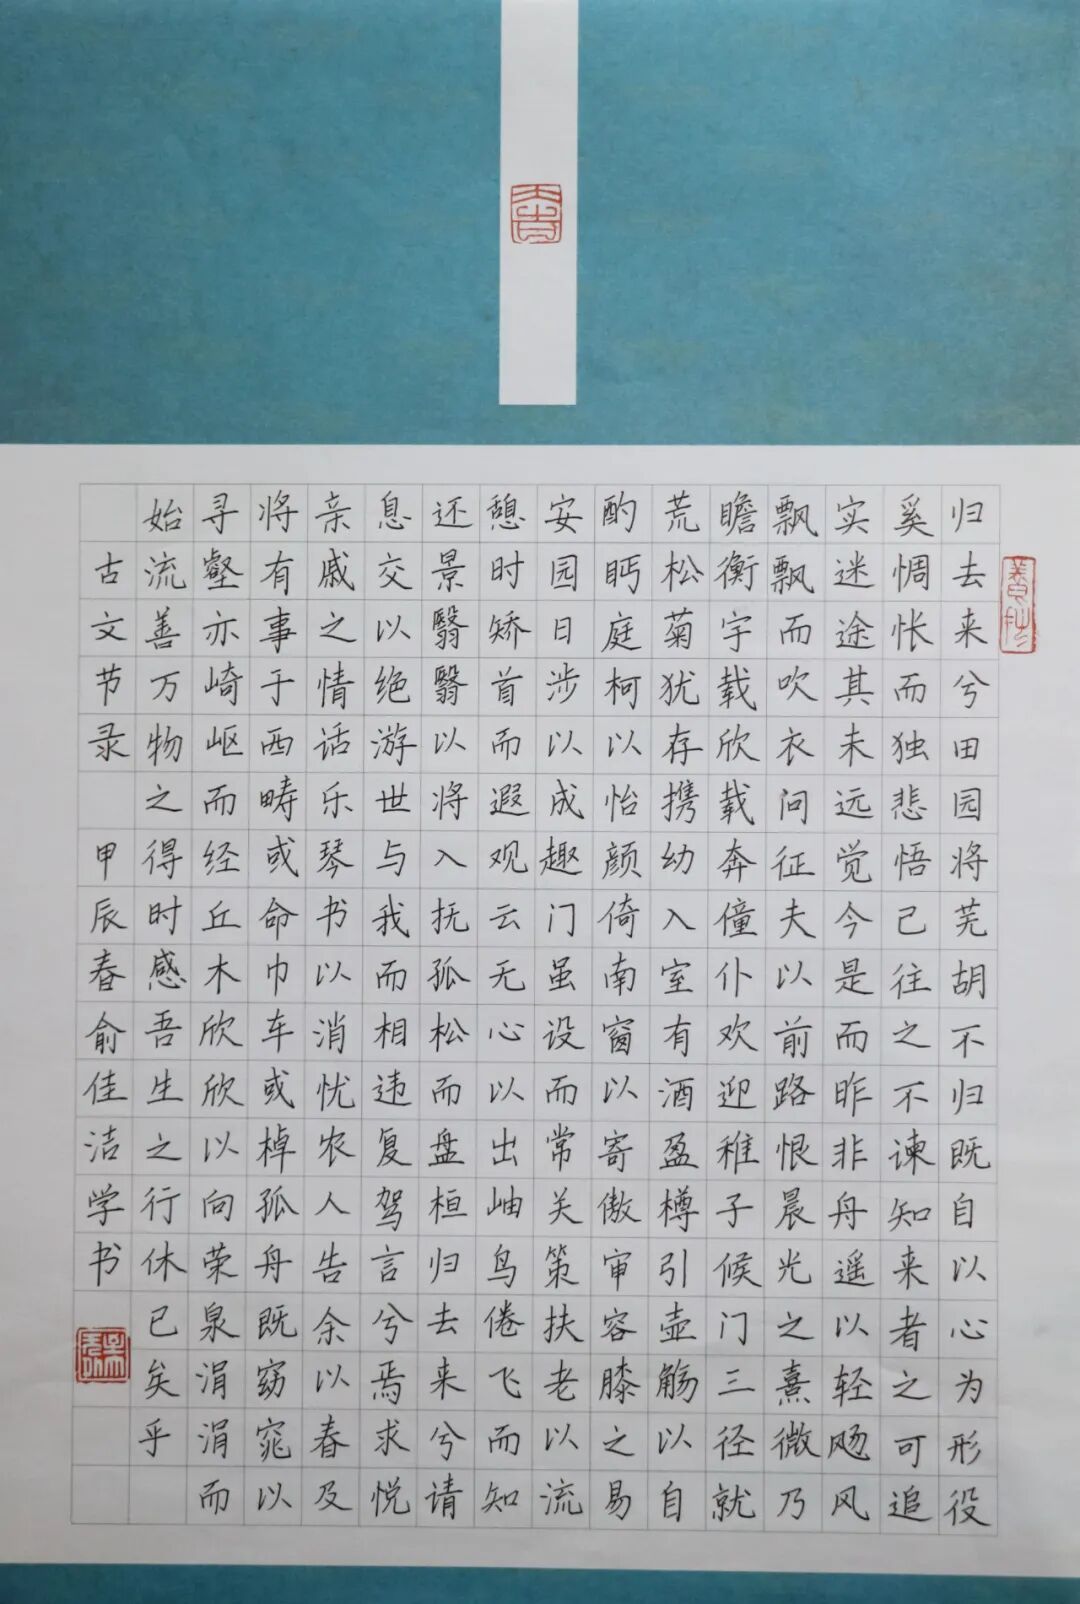 归去来兮田园将芜胡不归既自以心为形役
奚惆怅而独悲悟已往之不谏知来者之可追
实迷途其未远觉今是而昨非舟遥以轻飏风
飘飘而吹衣问征夫以前路恨晨光之熹微乃
瞻衡宇载欣载奔僮仆欢迎稚子候门三径就
荒松菊犹存携幼入室有酒盈樽引壶觞以自
酌眄庭柯以怡颜倚南窗以寄傲审容膝之易
安园日涉以成趣门虽设而常关策扶老以流
憩时矫首而遐观云无心以出岫鸟倦飞而知
还景翳翳以将入抚孤松而盘桓归去来兮请
息交以绝游世与我而相违复驾言兮焉求悦
亲戚之情话乐琴书以消忧农人告余以春及
将有事于西畴或命巾车或棹孤舟既窈窕以
寻壑亦崎岖而经丘木欣欣以向荣泉涓涓而
始流善万物之得时感吾生之行休已矣乎
古文节录 甲辰春俞佳洁学书